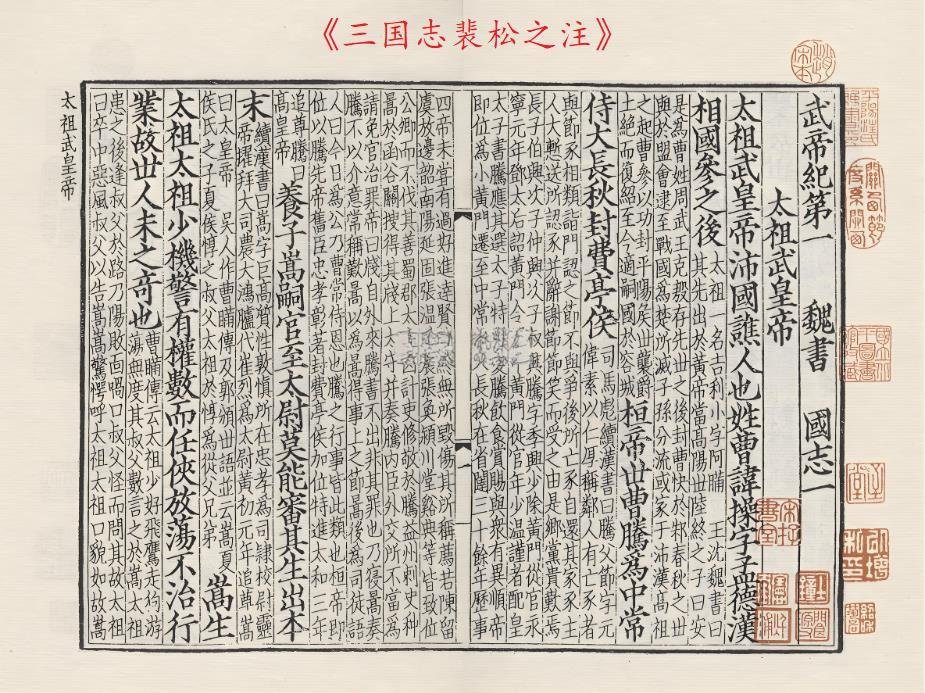 《三国志裴松之注》
武帝紀第一 魏書 國志一
太祖武皇帝
太祖武皇帝沛國譙人也姓曹諱操字孟德漢
相國參之後
太祖一名吉利小字阿瞞 王沈魏書曰
其先出於黃帝當高陽世陸終之子曰安
是為曹姓周武王克殷存先世之後封曹俠於邾春秋之世
與於盟會逮至戰國為楚所滅子孫分流或家于沛漢高祖
之起曹參以功封平陽侯世襲爵
土絕而復紹至今適嗣國於容城
桓帝世曹騰為中常
侍大長秋封費亭侯
司馬彪續漢書曰騰父節字元
偉素以仁厚稱鄰人有亡豕者
與節豕相類詣門認之節不與爭後所亡豕自還其家豕主
人大慙送所認豕并辭謝節節笑而受之由是鄉黨貴歎焉
長子伯興次子仲興次子叔興騰字季興少除黃門從官永
寧元年鄧太后詔黃門令選中黃門從官年少溫謹者配皇
太子書騰應其選太子特親愛騰飲食賞賜與衆有異順帝
即位為小黃門遷至中常侍大長秋在省闥三十餘年歷事
四帝未嘗有過好進達賢能終無所毀傷其所稱薦若陳留
虞放邊韶南陽延固張溫弘農張奐潁川堂谿典等皆致位
公卿而不伐其善蜀郡太守因計吏修敬於騰益州刺史种
暠於函谷關搜得其牋上太守并奏騰內臣外交所不當為
請免官治罪帝曰牋自外來騰書不出非其罪也乃寢暠奏
騰不以介意常稱歎暠以為暠得事上之節暠後為司徒語
人曰今日為公乃曹常侍恩也騰之行事皆此類也桓帝即
位以騰先帝舊臣忠孝彰著封費亭侯加位特進太和三年
追尊騰曰
高皇帝
養子嵩嗣官至太尉莫能審其生出本
末
續漢書曰嵩字巨高質性敦慎所在忠孝為司隸校尉靈
帝擢拜大司農大鴻臚代崔烈為太尉黃初元年追尊嵩
曰太皇帝 吳人作曹瞞傳及郭頒世語並云嵩夏
侯氏之子夏侯惇之叔父太祖於惇為從父兄弟
嵩生
太祖太祖少機警有權數而任俠放蕩不治行
業故世人未之奇也
曹瞞傳云太祖少好飛鷹走狗游
蕩無度其叔父數言之於嵩太祖
患之後逢叔父於路乃陽敗面喎口叔父怪而問其故太祖
曰卒中惡風叔父以告嵩嵩驚愕呼太祖太祖口貌如故嵩
太祖武皇帝